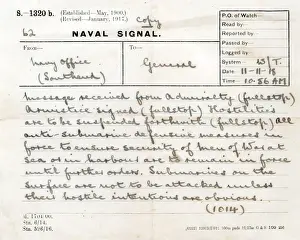 S.—1320 b. (Established—May, 1900.)
(Revised—January, 1917.)
Copy
62
NAVAL SIGNAL.
P.O. of Watch—
Read by—
Reported by—
Passed by—
Logged by—
System— W/T.
Date 11-11-18
Time 10.56AM
From—
To—
Navy Office
(Southend)
General
Message received from Admiralty (fullstop)
Armistice signed (fullstop) Hostilities
are to be suspended forthwith (fullstop) all
anti-submarine defensive measures in
force to ensure security of Men of War at
Sea or in harbour are to remain in force
until further orders. Submarines on the
surface are not to be attacked unless
their hostile intentions are obvious.
(1014)
Sta. 6/14.
Sta. 3/6/16.